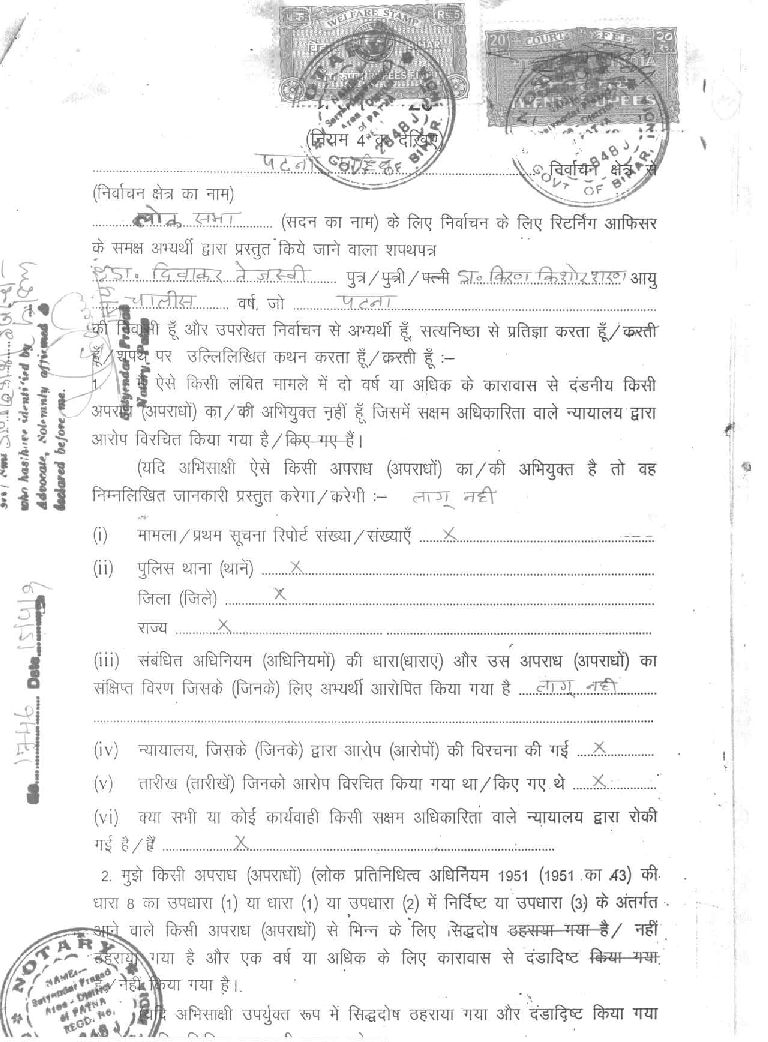 WELFARE STAMP
COURT FEE
20
(नियम 4 क देखिए)
पटना साहिब निर्वाचन क्षेत्र से
(निर्वाचन क्षेत्र का नाम)
लोक सभा (सदन का नाम) के लिए निर्वाचन के लिए रिटर्निंग आफिसर
के समक्ष अभ्यर्थी द्वारा प्रस्तुत किये जाने वाला शपथपत्र
डा. दिवाकर तेजस्वी पुत्र/पुत्री/पत्नी डा. किरण किशोर शरण आयु
चालीस वर्ष, जो पटना
की निवासी हूँ और उपरोक्त निर्वाचन से अभ्यर्थी हूँ, सत्यनिष्ठा से प्रतिज्ञा करता हूँ/करती
हूँ/शपथ पर उल्लिलिखित कथन करता हूँ/करती हूँ :–
1. मैं ऐसे किसी लंबित मामले में दो वर्ष या अधिक के कारावास से दंडनीय किसी
अपराध (अपराधों) का/की अभियुक्त नहीं हूँ जिसमें सक्षम अधिकारिता वाले न्यायालय द्वारा
आरोप विरचित किया गया है/किए गए हैं।
(यदि अभिसाक्षी ऐसे किसी अपराध (अपराधों) का/की अभियुक्त है तो वह
निम्नलिखित जानकारी प्रस्तुत करेगा/करेगी :– लागू नहीं
(i) मामला/प्रथम सूचना रिपोर्ट संख्या/संख्याएँ X
(ii) पुलिस थाना (थानें) X
जिला (जिले) X
राज्य X
(iii) संबंधित अधिनियम (अधिनियमों) की धारा(धाराएं) और उस अपराध (अपराधों) का
संक्षिप्त विरण जिसके (जिनके) लिए अभ्यर्थी आरोपित किया गया है लागू नहीं
(iv) न्यायालय, जिसके (जिनके) द्वारा आरोप (आरोपों) की विरचना की गई X
(v) तारीख (तारीखें) जिनको आरोप विरचित किया गया था/किए गए थे X
(vi) क्या सभी या कोई कार्यवाही किसी सक्षम अधिकारिता वाले न्यायालय द्वारा रोकी
गई है/हैं X
2. मुझे किसी अपराध (अपराधों) (लोक प्रतिनिधित्व अधिनियम 1951 (1951 का 43) की
धारा 8 का उपधारा (1) या धारा (1) या उपधारा (2) में निर्दिष्ट या उपधारा (3) के अंतर्गत
आने वाले किसी अपराध (अपराधों) से भिन्न के लिए सिद्धदोष ठहराया गया है/ नहीं
ठहराया गया है और एक वर्ष या अधिक के लिए कारावास से दंडादिष्ट किया गया
है/नहीं किया गया है।
यदि अभिसाक्षी उपर्युक्त रूप में सिद्धदोष ठहराया गया और दंडादिष्ट किया गया
who has/have identified by
Advocate, Solemnly affirmed &
declared before me.
Satyendar Prasad
Notary, Patna
No. Date
NOTARY
NAME:-
Satyendar Prasad
Area - District
of PATNA
REGD. No.
NOTARY
GOVT OF BIHAR, INDIA
2848